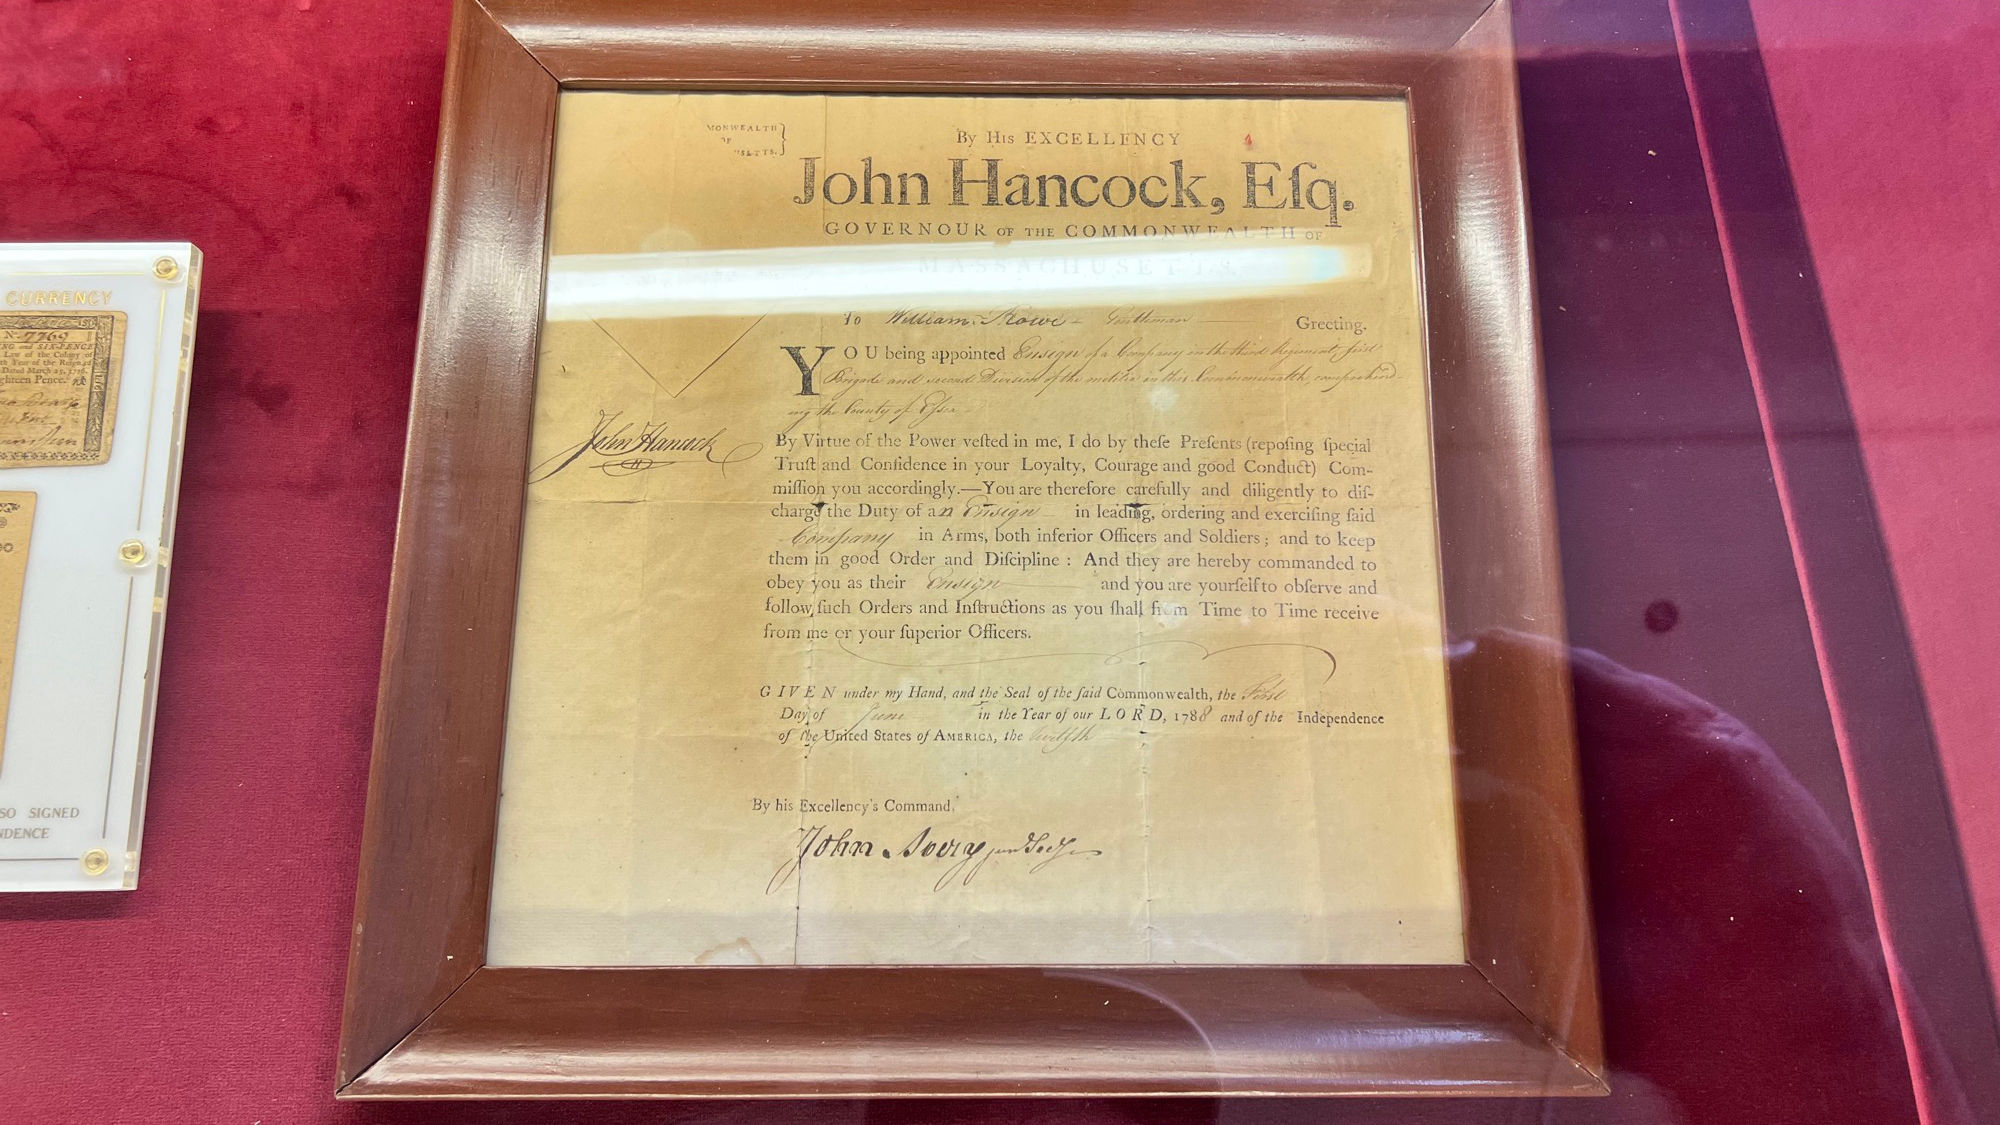 MONWEALTH
OF
USETTS.
By His EXCELLENCY
John Hancock, Eſq.
GOVERNOUR OF THE COMMONWEALTH OF
MASSACHUSETTS.
To William Rowe Gentleman Greeting.
YOU being appointed Ensign of a Company in the third Regiment, first
Brigade and second Division of the militia in this Commonwealth, comprehend-
ing the County of Essex
John Hancock
By Virtue of the Power veſted in me, I do by theſe Preſents (repoſing ſpecial
Truſt and Confidence in your Loyalty, Courage and good Conduct) Com-
miſſion you accordingly.—You are therefore carefully and diligently to diſ-
charge the Duty of an Ensign in leading, ordering and exerciſing ſaid
Company in Arms, both inferior Officers and Soldiers; and to keep
them in good Order and Diſcipline: And they are hereby commanded to
obey you as their Ensign and you are yourſelf to obſerve and
follow ſuch Orders and Inſtructions as you ſhall from Time to Time receive
from me or your ſuperior Officers.
GIVEN under my Hand, and the Seal of the ſaid Commonwealth, the First
Day of June in the Year of our LORD, 1788 and of the Independence
of the United States of AMERICA, the twelfth
By his Excellency's Command,
John Avery jun Secy
CURRENCY
No. 7769
NG and SIX-PENCE
Law of the Colony of
th Year of the Reign
Dated March 25, 1776.
ghteen Pence.
SO SIGNED
NDENCE